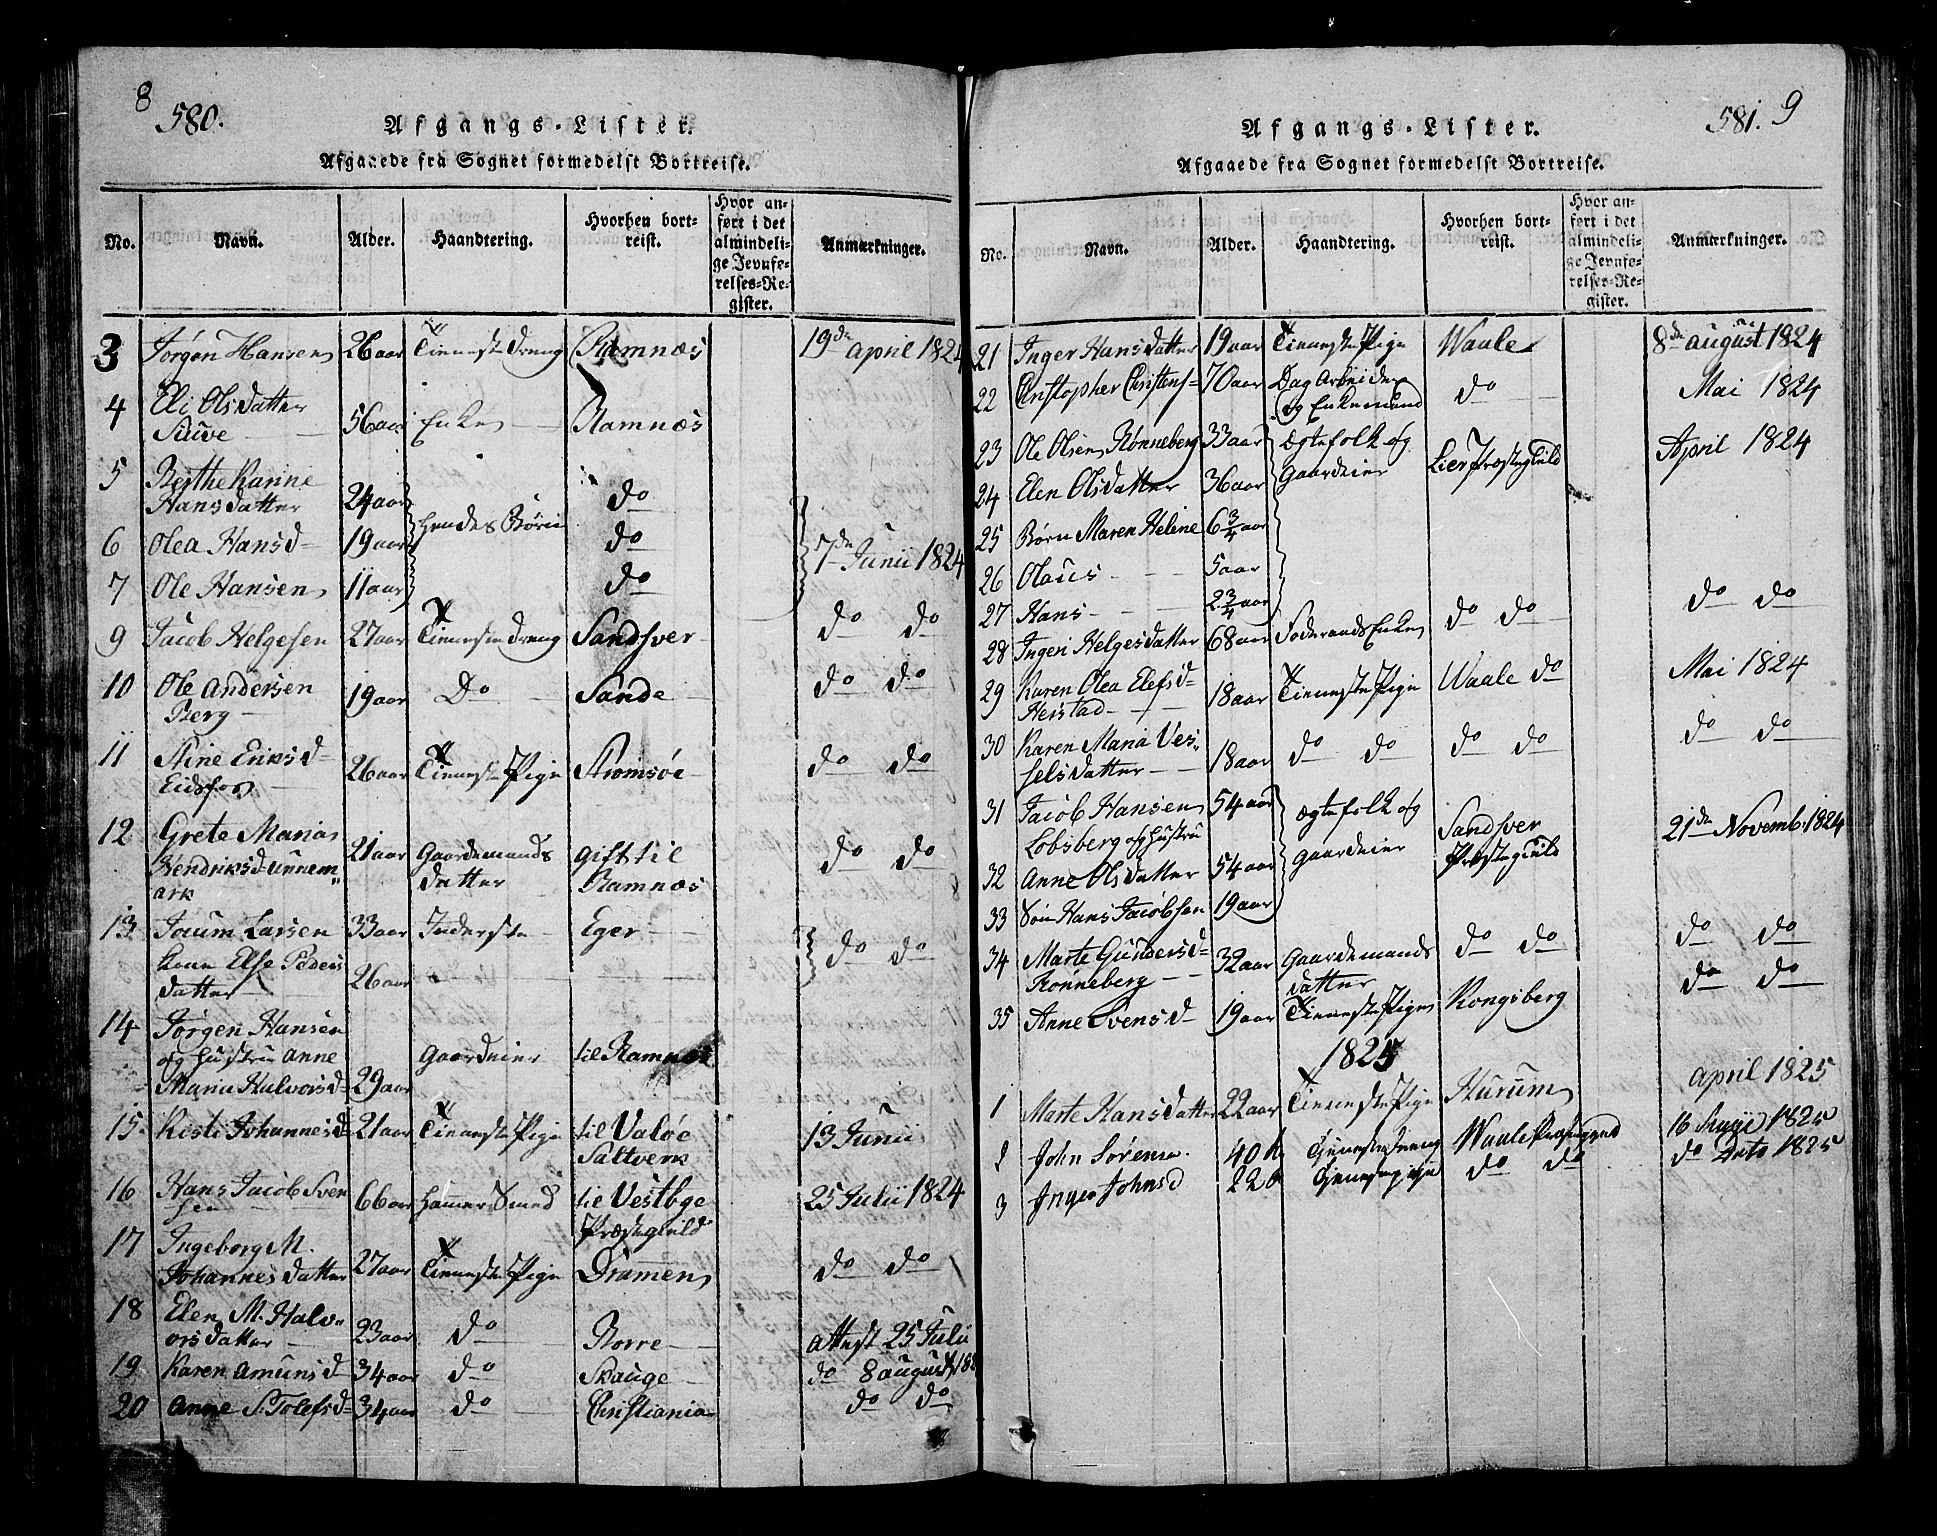 8
580.
Afgangs-Lister.
Afgaaede fra Sognet formedelst Bortreise.
No. Navn. Alder. Haandtering. Hvorhen bortreist. Hvor anført i det almindelige Jevnførelses-Register. Anmærkninger.
3 Jørgen Hansen 26 aar Tienneste Dreng Ramnæs 19de april 1824
4 Eli Olsdatter
Stuve 56 aar Enke Ramnæs
5 Berthe Karine
Hansdatter 24 aar do
hendes Børn
6 Olea Hansd 19 aar do 7de Junii 1824
7 Ole Hansen 11 aar do
9 Jacob Helgesen 27 aar Tienneste Dreng Sandsver do do
10 Ole Andersen
Berg 19 aar Do Sande do do
11 Stine Eriksd
Eidsfos 26 aar Tienneste Pige Strømsøe do do
12 Grete Maria
Hendriksd unnem„
ark 21 aar Gaardemands
datter gift til
Ramnæs do do
13 Joum Larsen 33 aar Inderste Eger do do
kone Else Peders
datter 26 aar
14 Jørgen Hansen
og hustru anne
Maria Halvorsd 29 aar gaardeier til Ramnæs
15 Kisti Johannesd 21 aar Tienneste Pige til Valøe
Saltverk 13 Junii
16 Hans Jacob Sven
sen 66 aar hamer Smed til Vestbye
Præstegield 25 Julii 1824
17 Ingeborg M.
Johannesdatter 27 aar Tienneste Pige Dramen do do
18 Elen M. Halv„
orsdatter 23 aar do Borre attest 25 Julii
19 Karen amunsd 34 aar do Skauge do 8 august 182
20 Anne S. Tolefsd 34 aar do Christiania do do
581. 9
Afgangs-Lister.
Afgaaede fra Sognet formedelst Bortreise.
No. Navn. Alder. Haandtering. Hvorhen bortreist. Hvor anført i det almindelige Jevnførelses-Register. Anmærkninger.
21 Inger Hansdatter 19 aar Tienneste Pige Waale 8de august 1824
22 Christopher Christens= 70 aar Dag Arbeider
og Enkemand do Mai 1824
23 Ole Olsen Rønneberg 33 aar ægtefolk og
gaardeier Lier Præstegield April 1824
24 Elen Olsdatter 36 aar
25 Børn Maren Heline 6 3/4 aar
26 Olaus 5 aar
27 Hans 2 3/4 aar
28 Ingeri Helgesdatter 68 aar Foderaads Enke do do do do
29 Karen Olea Elefsd
Heistad 18 aar Tienneste Pige Waale do Mai 1824
30 Karen Maria Ves„
selsdatter 18 aar do do do do do do
31 Jacob Hansen
Lobsberg og hustru 54 aar ægtefolk og
gaardeier Sandsver
Præstegield 21de Novemb. 1824
32 Anne Olsdatter 54 aar
33 Søn Hans Jacobsen 19 aar
34 Marte Gundersd
Rønneberg 32 aar Gaardemands
datter do do do do
35 Anne Svensd 19 aar Tienneste Pige Kongsberg do do
1825
1 Marte Hansdatter 22 aar Tienneste Pige Hurum april 1825
2 John Sørensen 40 Tjenestedreng Waale Præstegield 16 1825
3 Inger Johnsd 22 Tjenestepige do do do Dato 1825